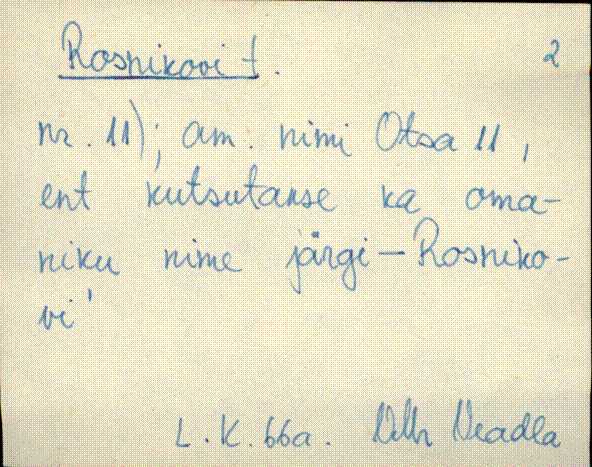 Rosnikovi t. 2
nr. 11); am. nimi Otsa 11,
ent kutsutakse ka oma-
niku nime järgi – Rosniko-
vi'
L. K. 66a. Veadla